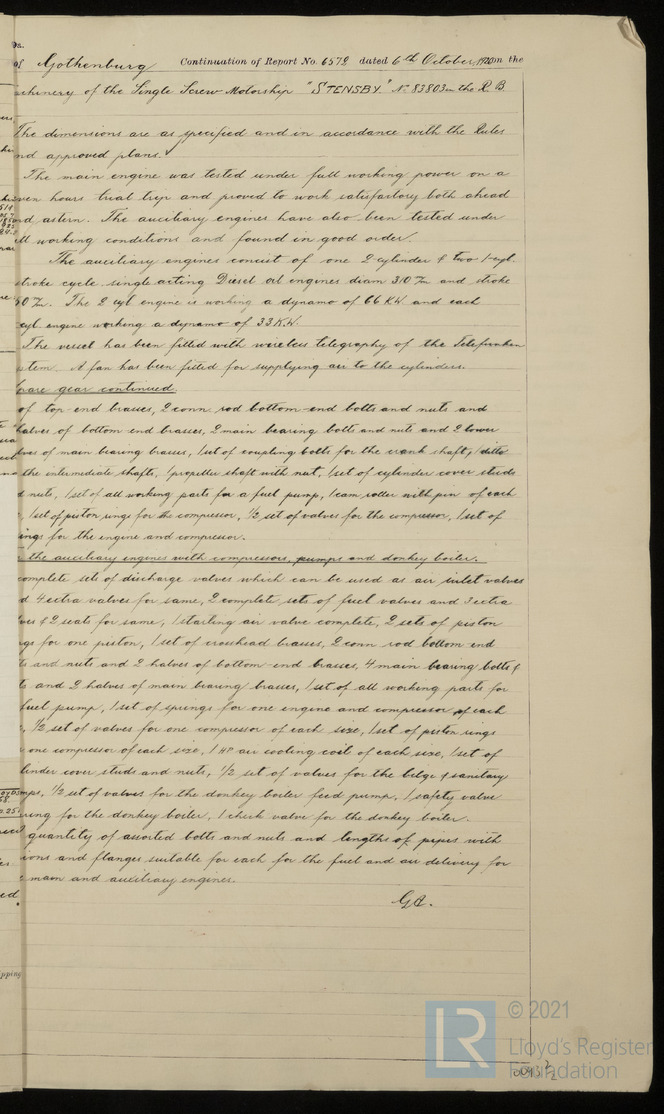 of Gothenburg Continuation of Report No. 6572 dated 6th October, 1920 on the
chinery of the Single Screw Motorship "STENSBY" No 83803 in the R B
The dimensions are as specified and in accordance with the Rules
nd approved plans.
The main engine was tested under full working power on a
ven hours trial trip and proved to work satisfactory both ahead
nd astern. The auxiliary engines have also been tested under
ll working conditions and found in good order.
The auxiliary engines consist of one 2 cylinder & two 1-cyl.
stroke cycle single acting Diesel oil engines diam 310 m/m and stroke
50 m/m. The 2 cyl engine is working a dynamo of 66 KW and each
cyl engine working a dynamo of 33 K.W.
The vessel has been fitted with wireless telegraphy of the Telefunken
stem. A fan has been fitted for supplying air to the cylinders.
pare gear continued
of top end brasses, 2 conn rod bottom end bolts and nuts and
halves of bottom end brasses, 2 main bearing bolts and nuts and 2 lower
lves of main bearing brasses, 1 set of coupling bolts for the crank shaft, 1 ditto
the intermediate shafts, 1 propeller shaft with nut, 1 set of cylinder cover studs
d nuts, 1 set of all working parts for a fuel pump, 1 cam roller with pin of each
, 1 set of piston rings for the compressor, 1/2 set of valves for the compressor, 1 set of
ings for the engine and compressor.
the auxiliary engines with compressors, pumps and donkey boiler.
complete sets of discharge valves which can be used as air inlet valves
d 4 extra valves for same, 2 complete sets of fuel valves and 3 extra
ves & 2 seats for same, 1 starting air valve complete, 2 sets of piston
gs for one piston, 1 set of crosshead brasses, 2 conn rod bottom end
ts and nuts and 2 halves of bottom-end brasses, 4 main bearing bolts &
ts and 2 halves of main bearing brasses, 1 set of all working parts for
fuel pump, 1 set of springs for one engine and compressor of each
, 1/2 set of valves for one compressor of each size, 1 set of piston rings
one compressor of each size, 1 HP air cooling coil of each size, 1 set of
linder cover studs and nuts, 1/2 set of valves for the bilge & sanitary
mps, 1/2 set of valves for the donkey boiler feed pump, 1 safety valve
ring for the donkey boiler, 1 check valve for the donkey boiler.
quantity of assorted bolts and nuts and lengths of pipes with
ions and flanges suitable for each for the fuel and air delivery for
main and auxiliary engines.
LR
© 2021
Lloyd's Register
Foundation